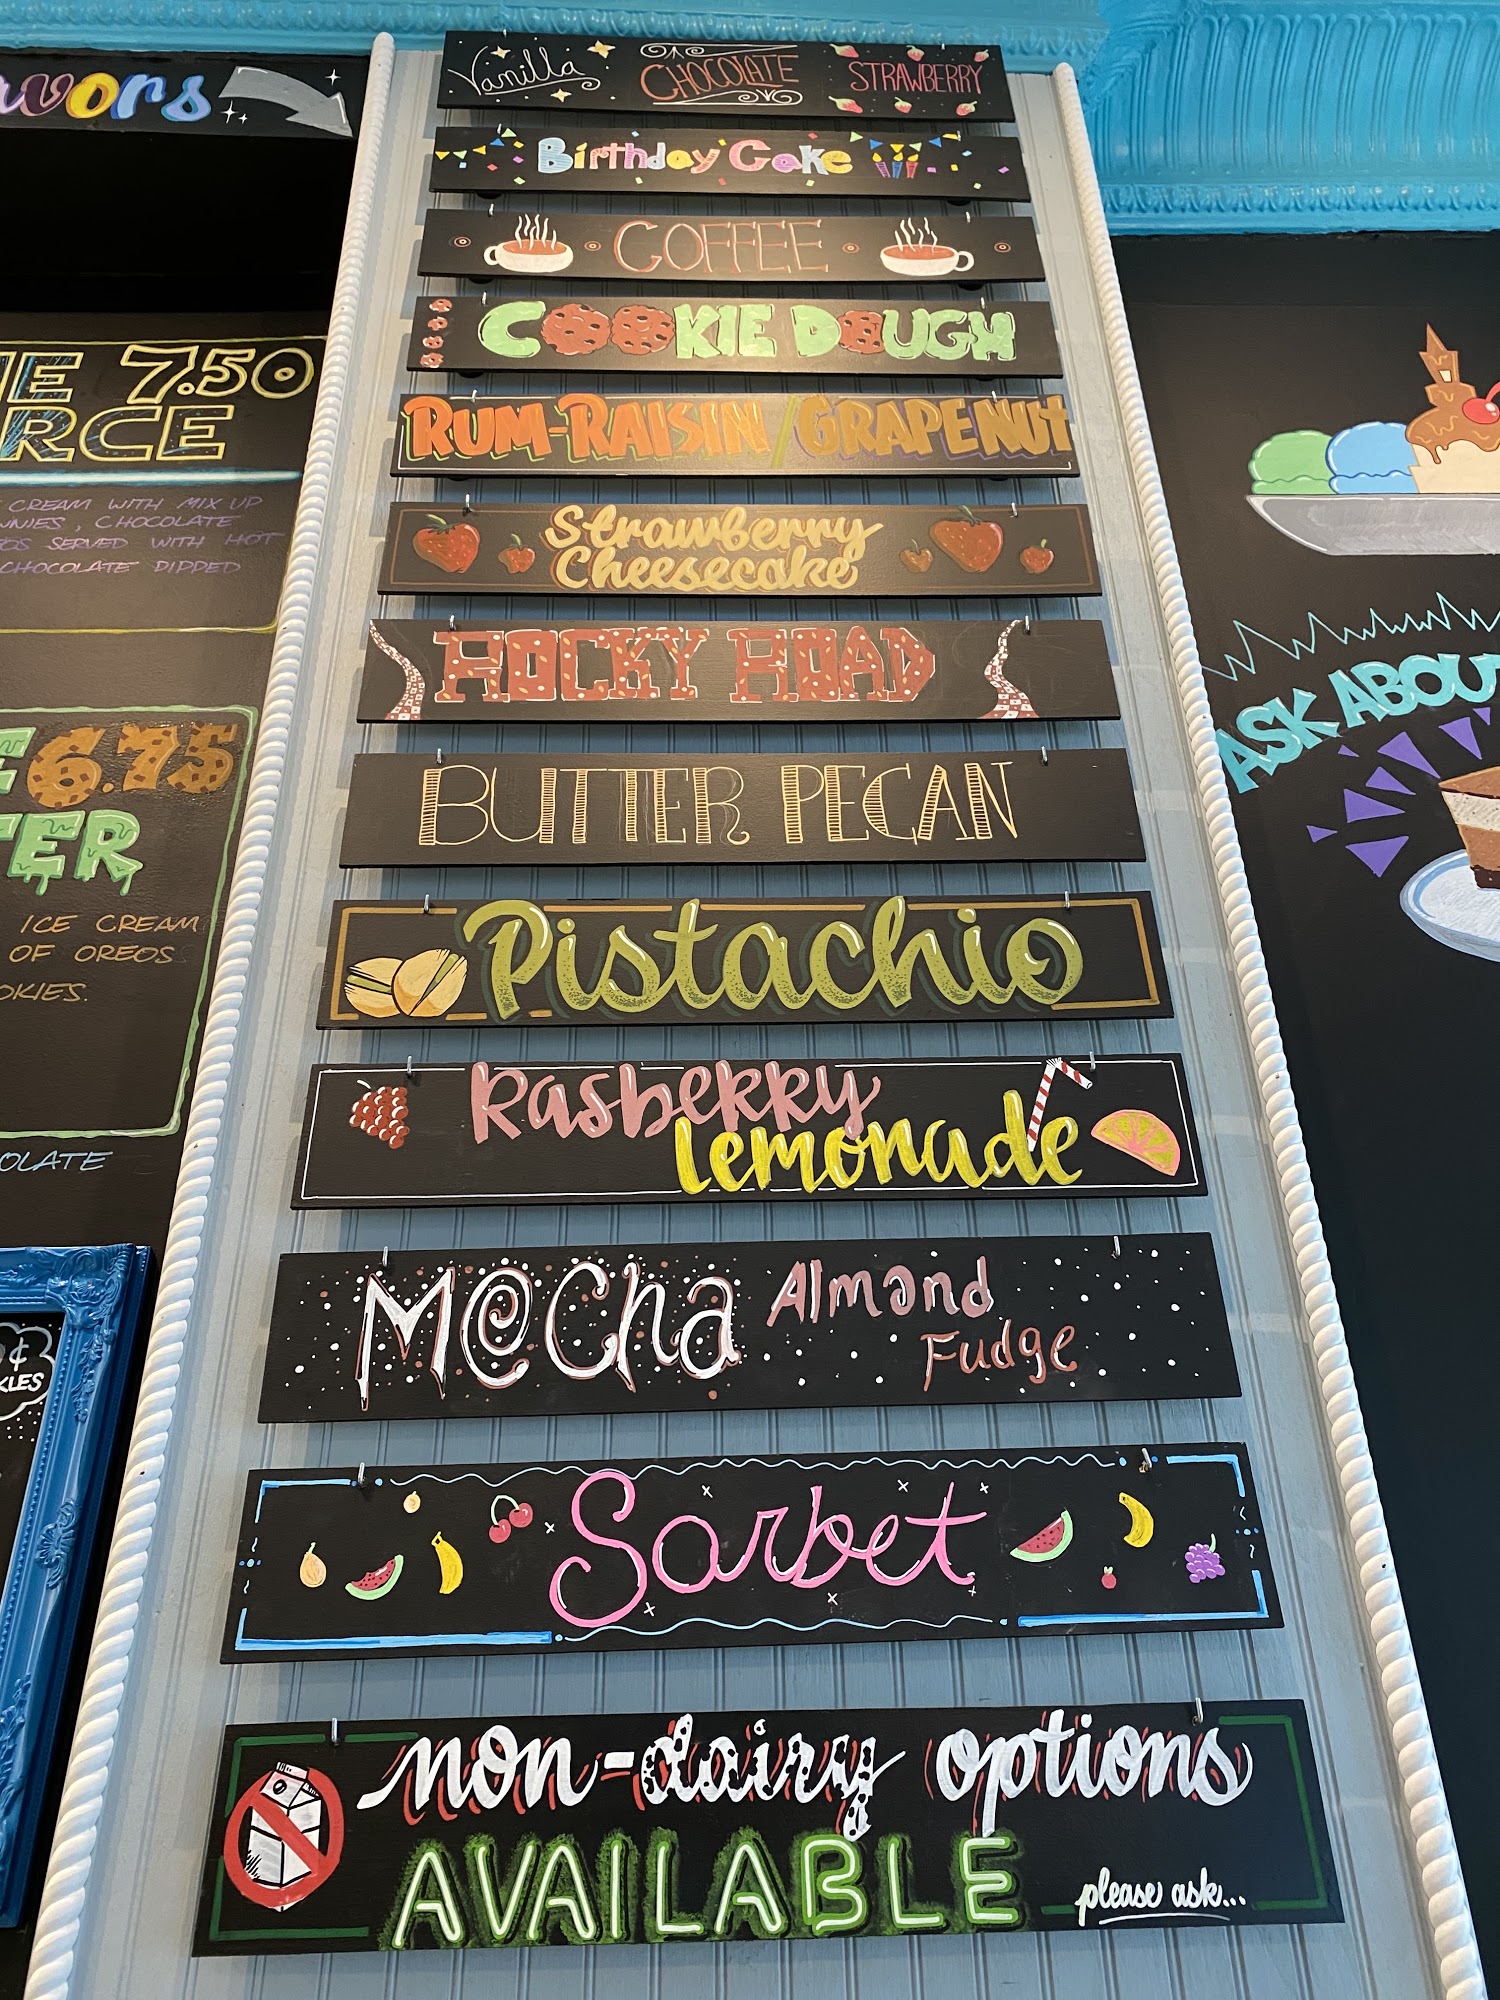 Vanilla CHOCOLATE STRAWBERRY
Birthday Cake
COFFEE
COOKIE DOUGH
RUM-RAISIN / GRAPENUT
Strawberry
Cheesecake
ROCKY ROAD
BUTTER PECAN
Pistachio
Rasberry
Lemonade
MOCha Almond
Fudge
Sorbet
non-dairy options
AVAILABLE please ask...
7.50
CREAM WITH MIX UP
, CHOCOLATE
SERVED WITH HOT
CHOCOLATE DIPPED
6.75
ICE CREAM
OF OREOS
ASK ABOU